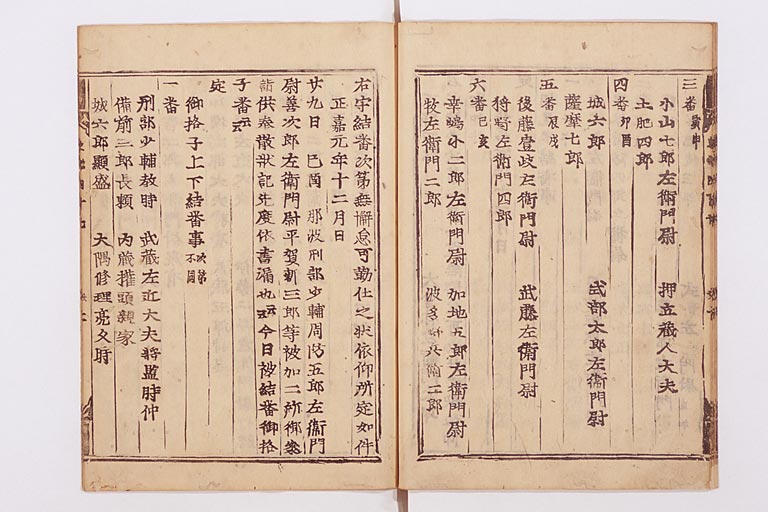 三番 寅申
小山七郎左衛門尉 押立蔵人大夫
土肥四郎
四番 卯酉
城六郎 式部太郎左衛門尉
薩摩七郎
五番 辰戌
後藤壹岐左衛門尉 武藤左衛門尉
狩野左衛門四郎
六番 巳亥
幸嶋小二郎左衛門尉 加地五郎左衛門尉
牧左衛門二郎 波多野兵衛二郎
右守結番次第無懈怠可勤仕之状依仰所定如件
正嘉元年十二月日
廿九日 己酉 那波刑部少輔周防五郎左衛門
尉善次郎左衛門尉平賀新三郎等被加二所御参
詣供奉散状記先度依書漏也云云今日被結番御格
子番云云
定
御格子上下結番事 次第不同
一番
刑部少輔教時 武蔵左近大夫将監時仲
備前三郎長頼 内蔵権頭親家
城六郎顕盛 大隅修理亮久時